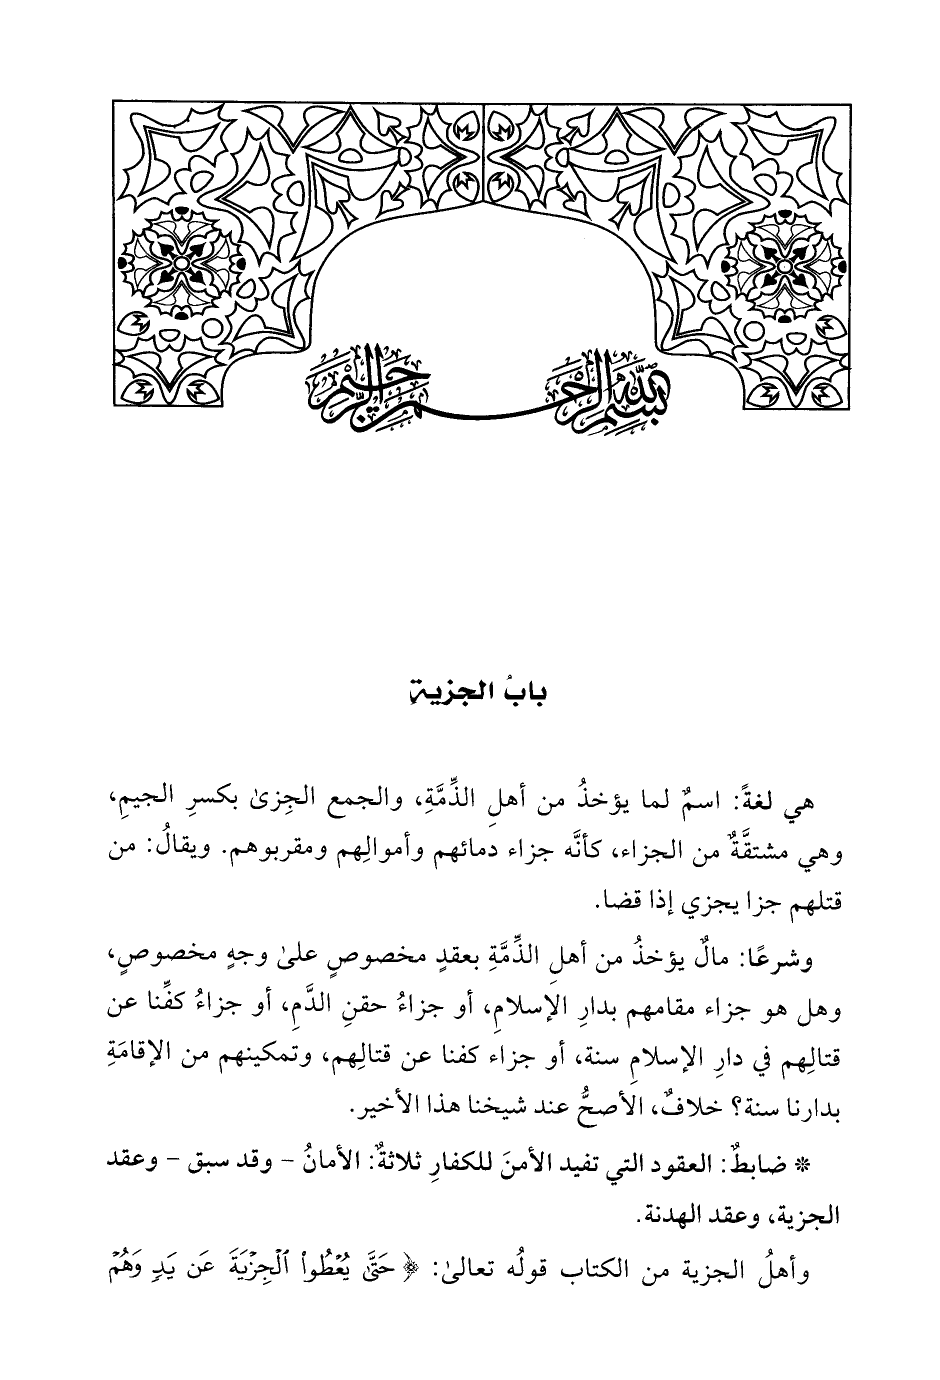 بسم الله الرحمن الرحيم
بابُ الجزية
هي لغةً: اسمٌ لما يؤخذُ من أهلِ الذِّمَّةِ، والجمع الجِزىٰ بكسرِ الجيمِ،
وهي مشتقَّةٌ من الجزاء، كأنَّه جزاء دمائهم وأموالِهم ومقربوهم. ويقالُ: من
قتلهم جزا يجزي إذا قضا.
وشرعًا: مالٌ يؤخذُ من أهلِ الذِّمَّةِ بعقدٍ مخصوصٍ علىٰ وجهٍ مخصوصٍ،
وهل هو جزاء مقامهم بدارِ الإسلامِ، أو جزاءُ حقنِ الدَّمِ، أو جزاءُ كفِّنا عن
قتالِهم في دارِ الإسلامِ سنة، أو جزاء كفنا عن قتالِهم، وتمكينهم من الإقامَةِ
بدارنا سنة؟ خلافٌ، الأصحُّ عند شيخنا هذا الأخير.
※ ضابطٌ: العقود التي تفيد الأمنَ للكفارِ ثلاثةٌ: الأمانُ – وقد سبق – وعقد
الجزية، وعقد الهدنة.
وأهلُ الجزية من الكتاب قولُه تعالىٰ: ﴿حَتَّىٰ يُعْطُوا۟ ٱلْجِزْيَةَ عَن يَدٍ وَهُمْ